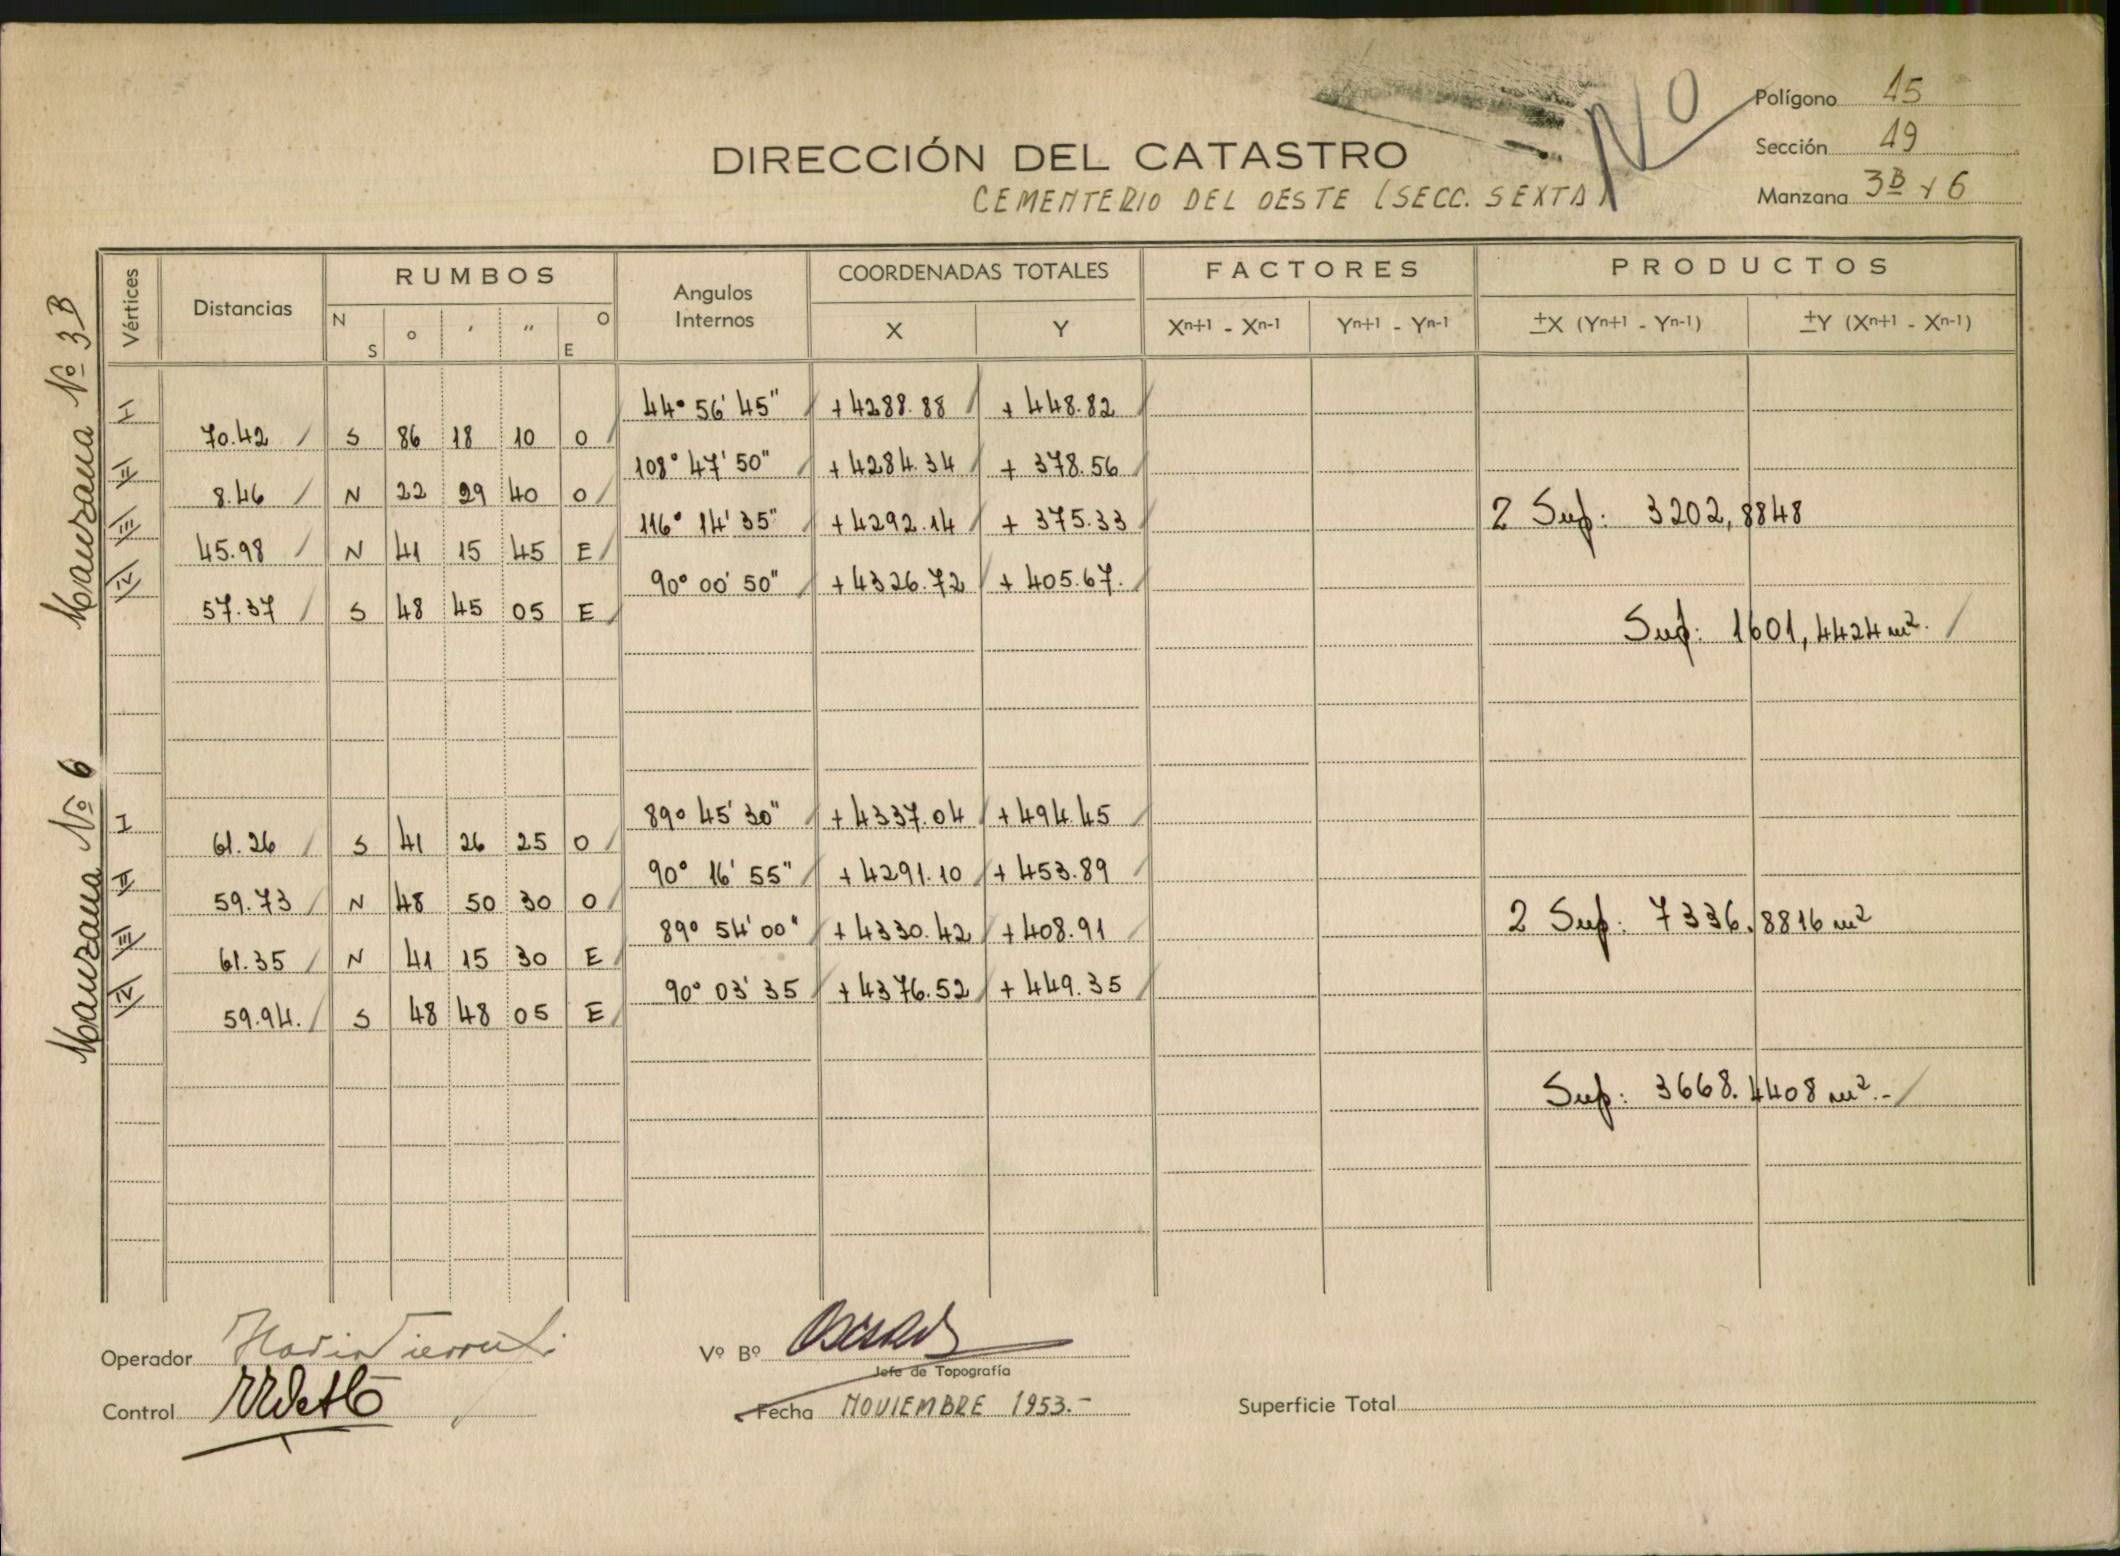 No
Polígono 15
Sección 19
Manzana 3B y 6
DIRECCIÓN DEL CATASTRO
CEMENTERIO DEL OESTE (SECC. SEXTA)
Vértices Distancias RUMBOS Angulos Internos COORDENADAS TOTALES FACTORES PRODUCTOS
N S ° ' " O E X Y Xn+1 - Xn-1 Yn+1 - Yn-1 ±X (Yn+1 - Yn-1) ±Y (Xn+1 - Xn-1)
Manzana Nº 3B
I 44° 56' 45" +4288.88 + 448.82
70.42 S 86 18 10 O
II 108° 47' 50" +4284.34 + 378.56
8.46 N 22 29 40 O
III 116° 14' 35" +4292.14 + 375.33 2 Sup: 3202,8848
45.98 N 41 15 45 E
IV 90° 00' 50" +4326.72 + 405.67.
57.37 S 48 45 05 E
Sup: 1601,4424 m².
Manzana Nº 6
I 89° 45' 30" +4337.04 +494.45
61.26 S 41 26 25 O
II 90° 16' 55" +4291.10 +453.89
59.73 N 48 50 30 O
III 89° 54' 00" +4330.42 +408.91 2 Sup: 7336.8816 m²
61.35 N 41 15 30 E
IV 90° 03' 35 +4376.52 +449.35
59.94. S 48 48 05 E
Sup: 3668.4408 m².-
Operador
Vº Bº
Jefe de Topografía
Control
Fecha NOVIEMBRE 1953.-
Superficie Total